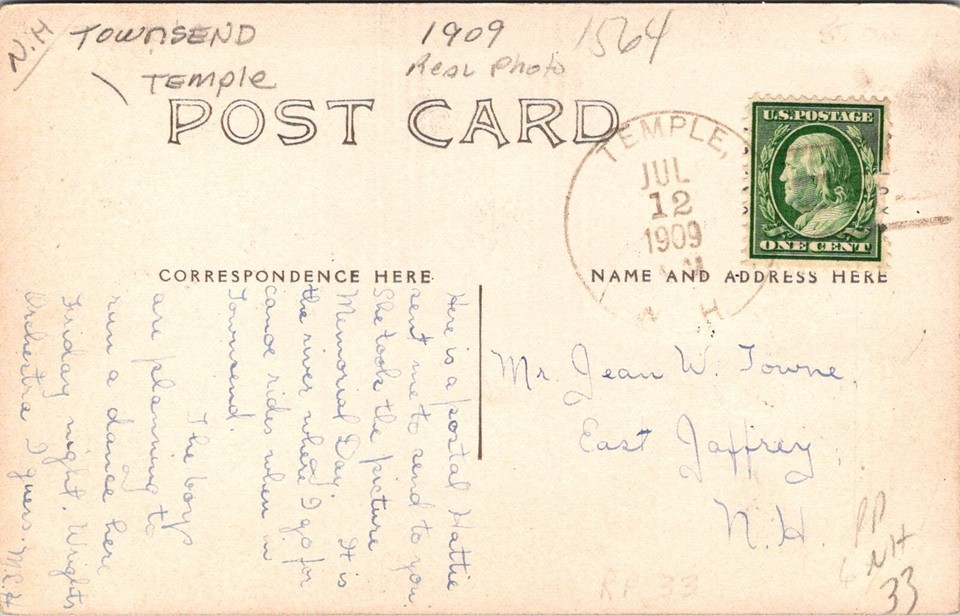 N.H
TOWNSEND
TEMPLE
1909
Real Photo
1564
POST CARD
TEMPLE,
JUL
12
1909
H
U.S. POSTAGE
ONE CENT
CORRESPONDENCE HERE
NAME AND ADDRESS HERE
Here is a postal Hattie
sent me to send to you.
She took the picture
Memorial Day. It is
the river where I go for
canoe rides when in
Townsend.
The boys
are planning to
run a dance here
Friday night. Wrights
Orchestra I guess. M.L.H
Mr. Jean W. Towne,
East Jaffrey,
N.H.
PP
NH
33
RP 33